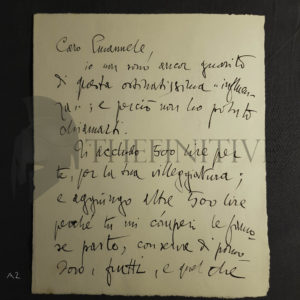 Caro Emanuele,
io non sono ancor guarito
di questa ostinatissima "influen-
za"; e perciò non ho potuto
chiamarti.
Ti accludo 500 lire per
te, per la tua villeggiatura;
e aggiungo altre 500 lire
perché tu mi comperi le famo-
se paste, conserve di pomo-
doro, frutti, e quel che
A2